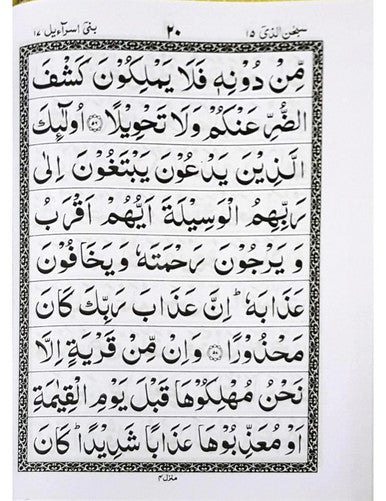 سبحن الذی ۱۵ ۲۰ بنی اسرآءیل ۱۷
مِّنْ دُوْنِهٖ فَلَا يَمْلِكُوْنَ كَشْفَ
الضُّرِّ عَنْكُمْ وَلَا تَحْوِيْلًا ۝۵۶ اُولٰٓئِكَ
الَّذِيْنَ يَدْعُوْنَ يَبْتَغُوْنَ اِلٰى
رَبِّهِمُ الْوَسِيْلَةَ اَيُّهُمْ اَقْرَبُ
وَ يَرْجُوْنَ رَحْمَتَهٗ وَ يَخَافُوْنَ
عَذَابَهٗ ؕ اِنَّ عَذَابَ رَبِّكَ كَانَ
مَحْذُوْرًا ۝۵۷ وَ اِنْ مِّنْ قَرْيَةٍ اِلَّا
نَحْنُ مُهْلِكُوْهَا قَبْلَ يَوْمِ الْقِيٰمَةِ
اَوْ مُعَذِّبُوْهَا عَذَابًا شَدِيْدًا ؕ كَانَ
منزل ۴